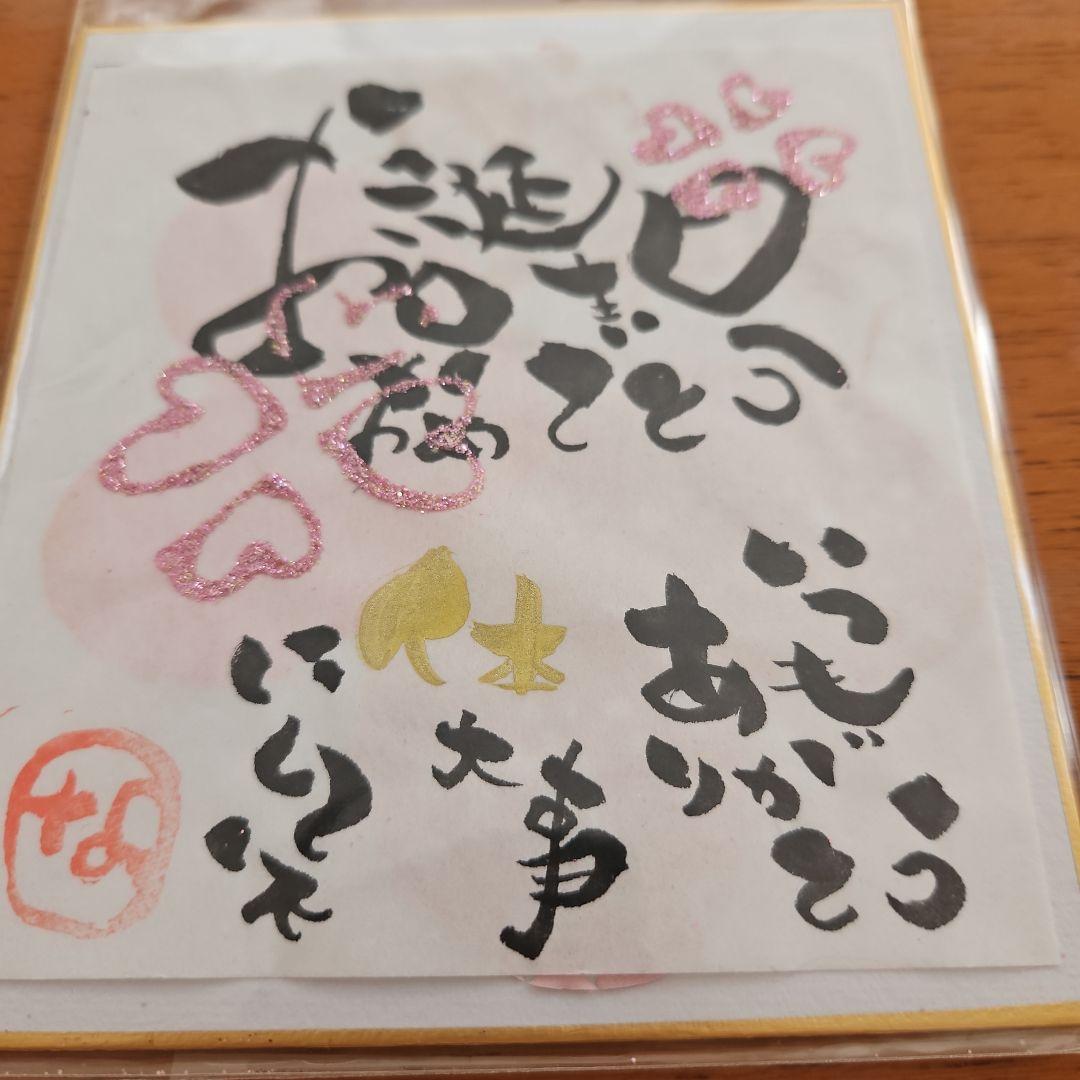 お誕生日
おめでとう
いつも
ありがとう
体大事
にしてね
な